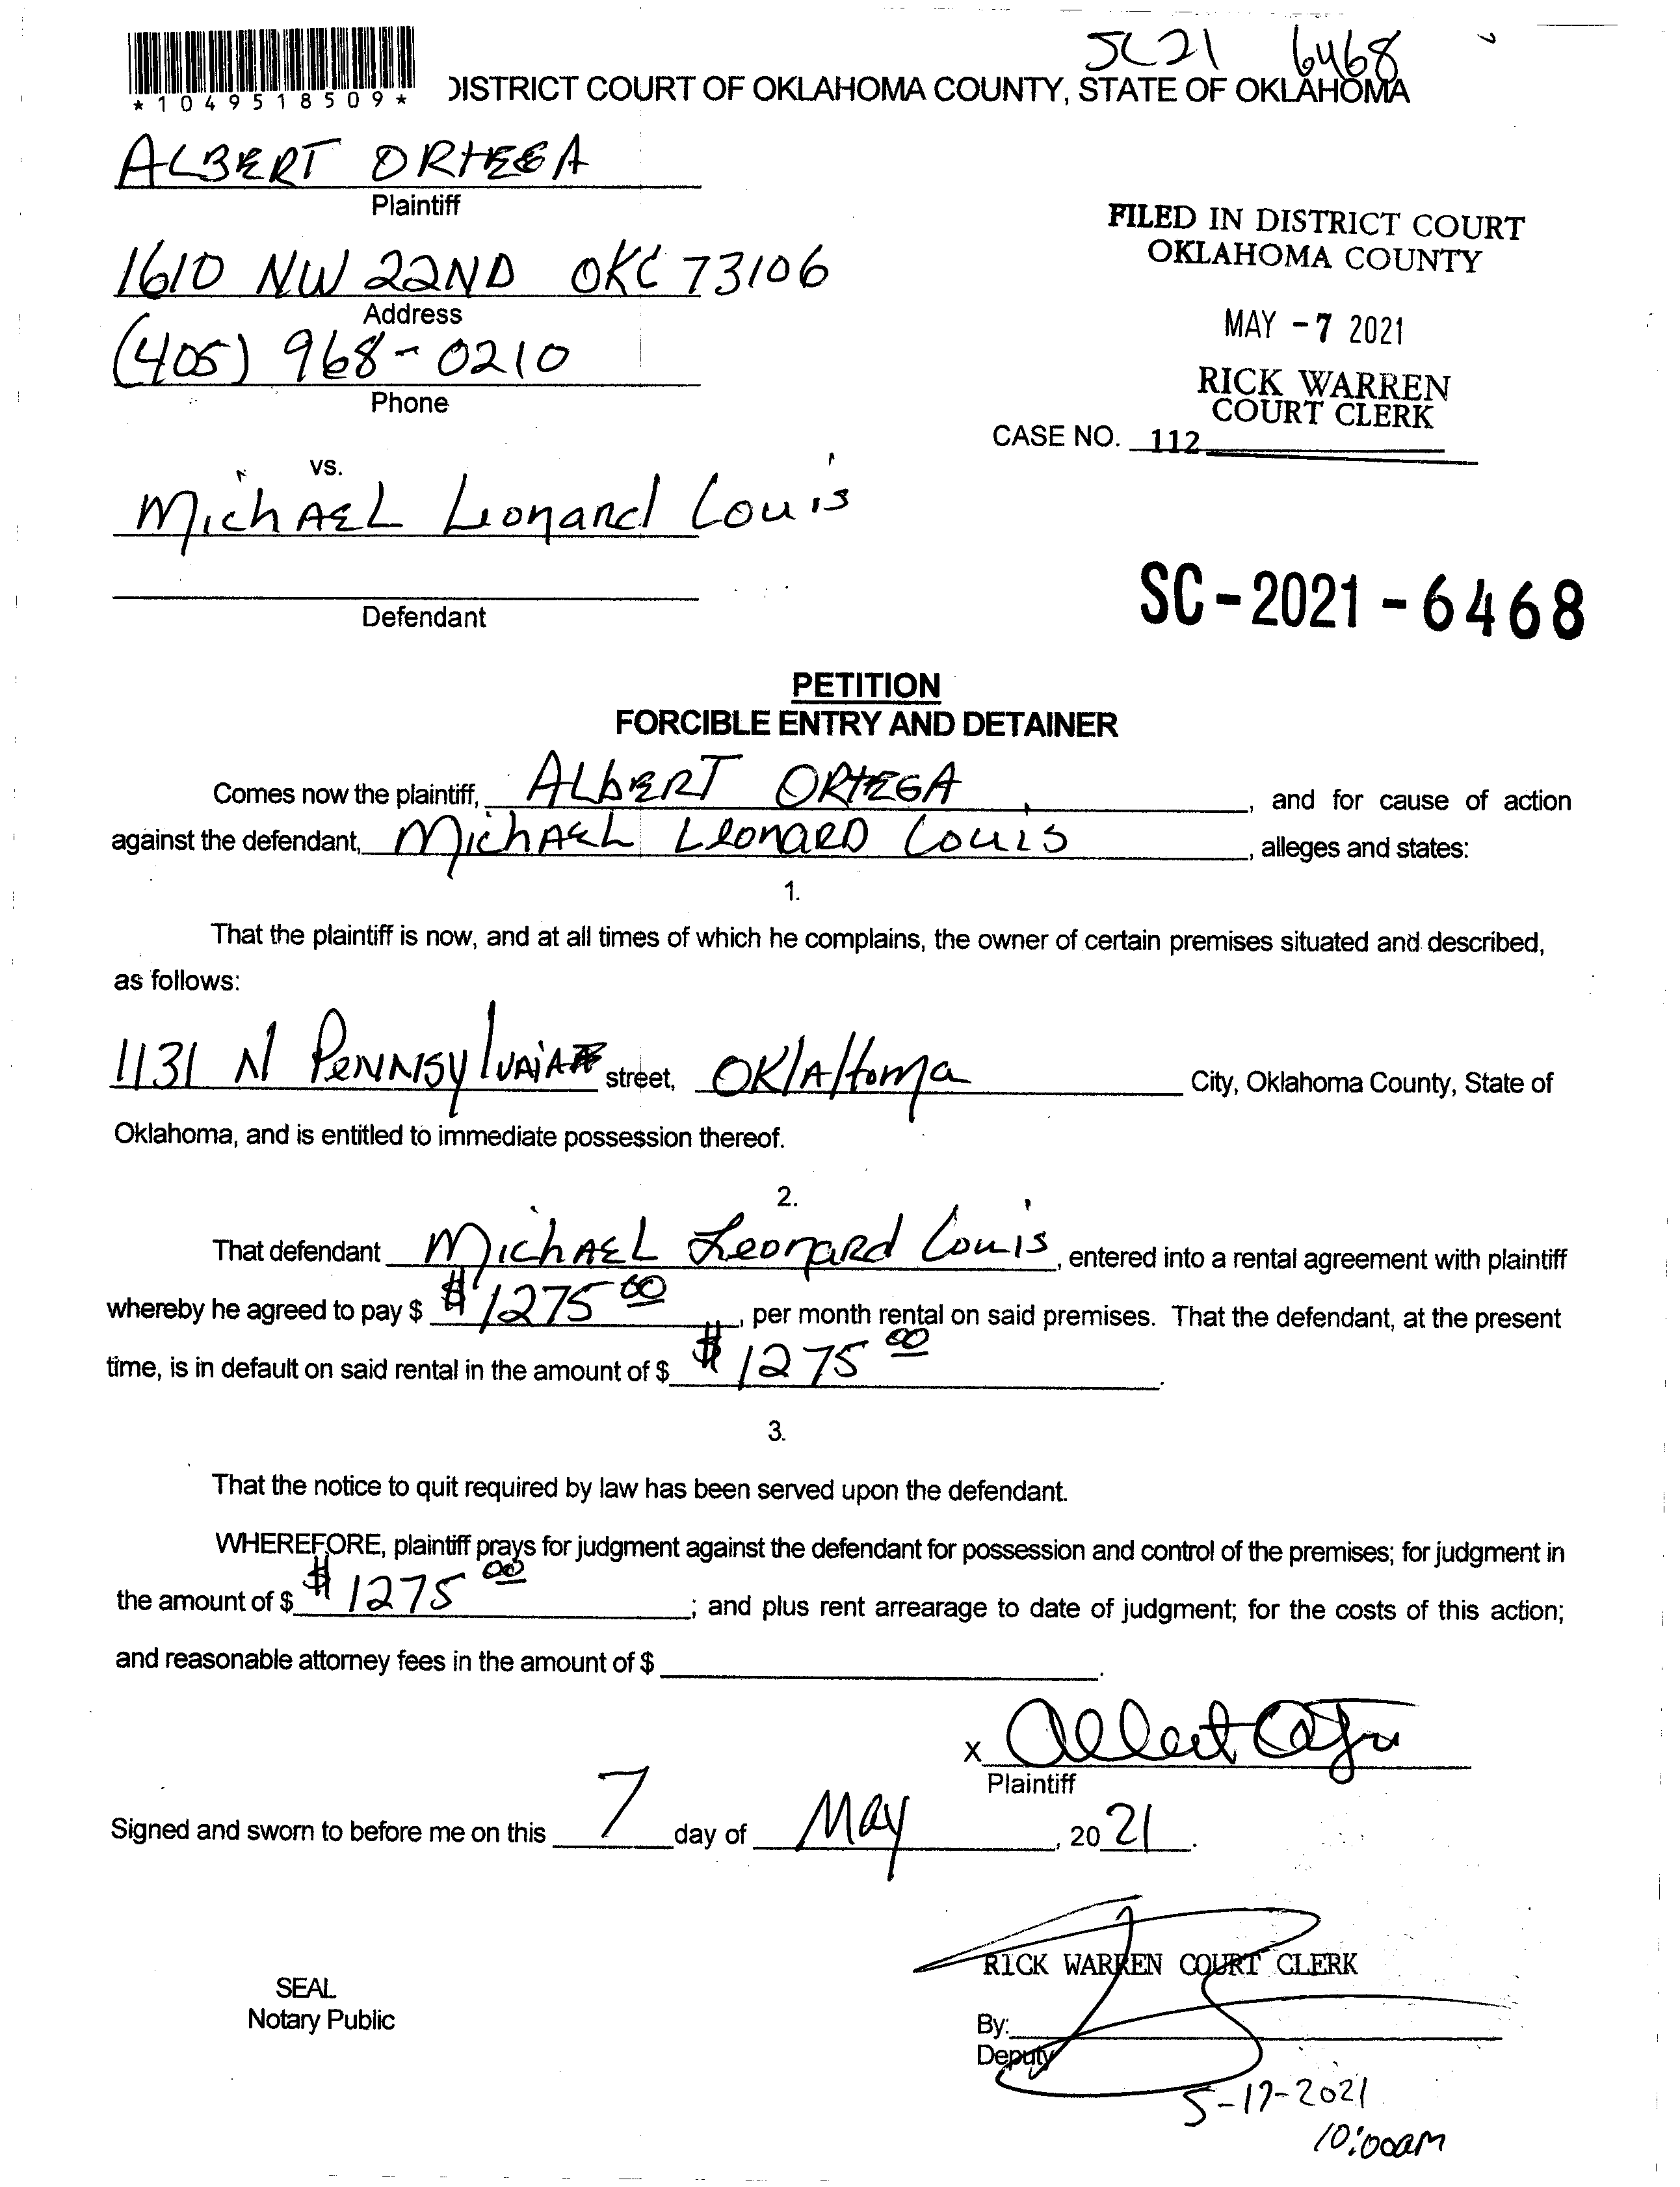 SC21 6468
*1049518509*
DISTRICT COURT OF OKLAHOMA COUNTY, STATE OF OKLAHOMA
ALBERT ORTEGA
Plaintiff
1610 NW 22ND OKC 73106
Address
(405) 968-0210
Phone
FILED IN DISTRICT COURT
OKLAHOMA COUNTY
MAY -7 2021
RICK WARREN
COURT CLERK
CASE NO. 112
vs.
MichAEL Leonard Louis
Defendant
SC-2021-6468
PETITION
FORCIBLE ENTRY AND DETAINER
Comes now the plaintiff, ALbERT ORTEGA, and for cause of action
against the defendant, MichAEL LeonaRD Louis, alleges and states:
1.
That the plaintiff is now, and at all times of which he complains, the owner of certain premises situated and described,
as follows:
1131 N PENNISylvAiA street, OKlAHoma City, Oklahoma County, State of
Oklahoma, and is entitled to immediate possession thereof.
2.
That defendant MichAEL LeonaRd Louis, entered into a rental agreement with plaintiff
whereby he agreed to pay $ $1275 00, per month rental on said premises. That the defendant, at the present
time, is in default on said rental in the amount of $ $1275 00.
3.
That the notice to quit required by law has been served upon the defendant.
WHEREFORE, plaintiff prays for judgment against the defendant for possession and control of the premises; for judgment in
the amount of $ $1275 00; and plus rent arrearage to date of judgment; for the costs of this action;
and reasonable attorney fees in the amount of $
x Albert Ortega
Plaintiff
Signed and sworn to before me on this 7 day of May, 2021.
RICK WARREN COURT CLERK
SEAL
Notary Public
By:
Deputy
5-17-2021
10:00am